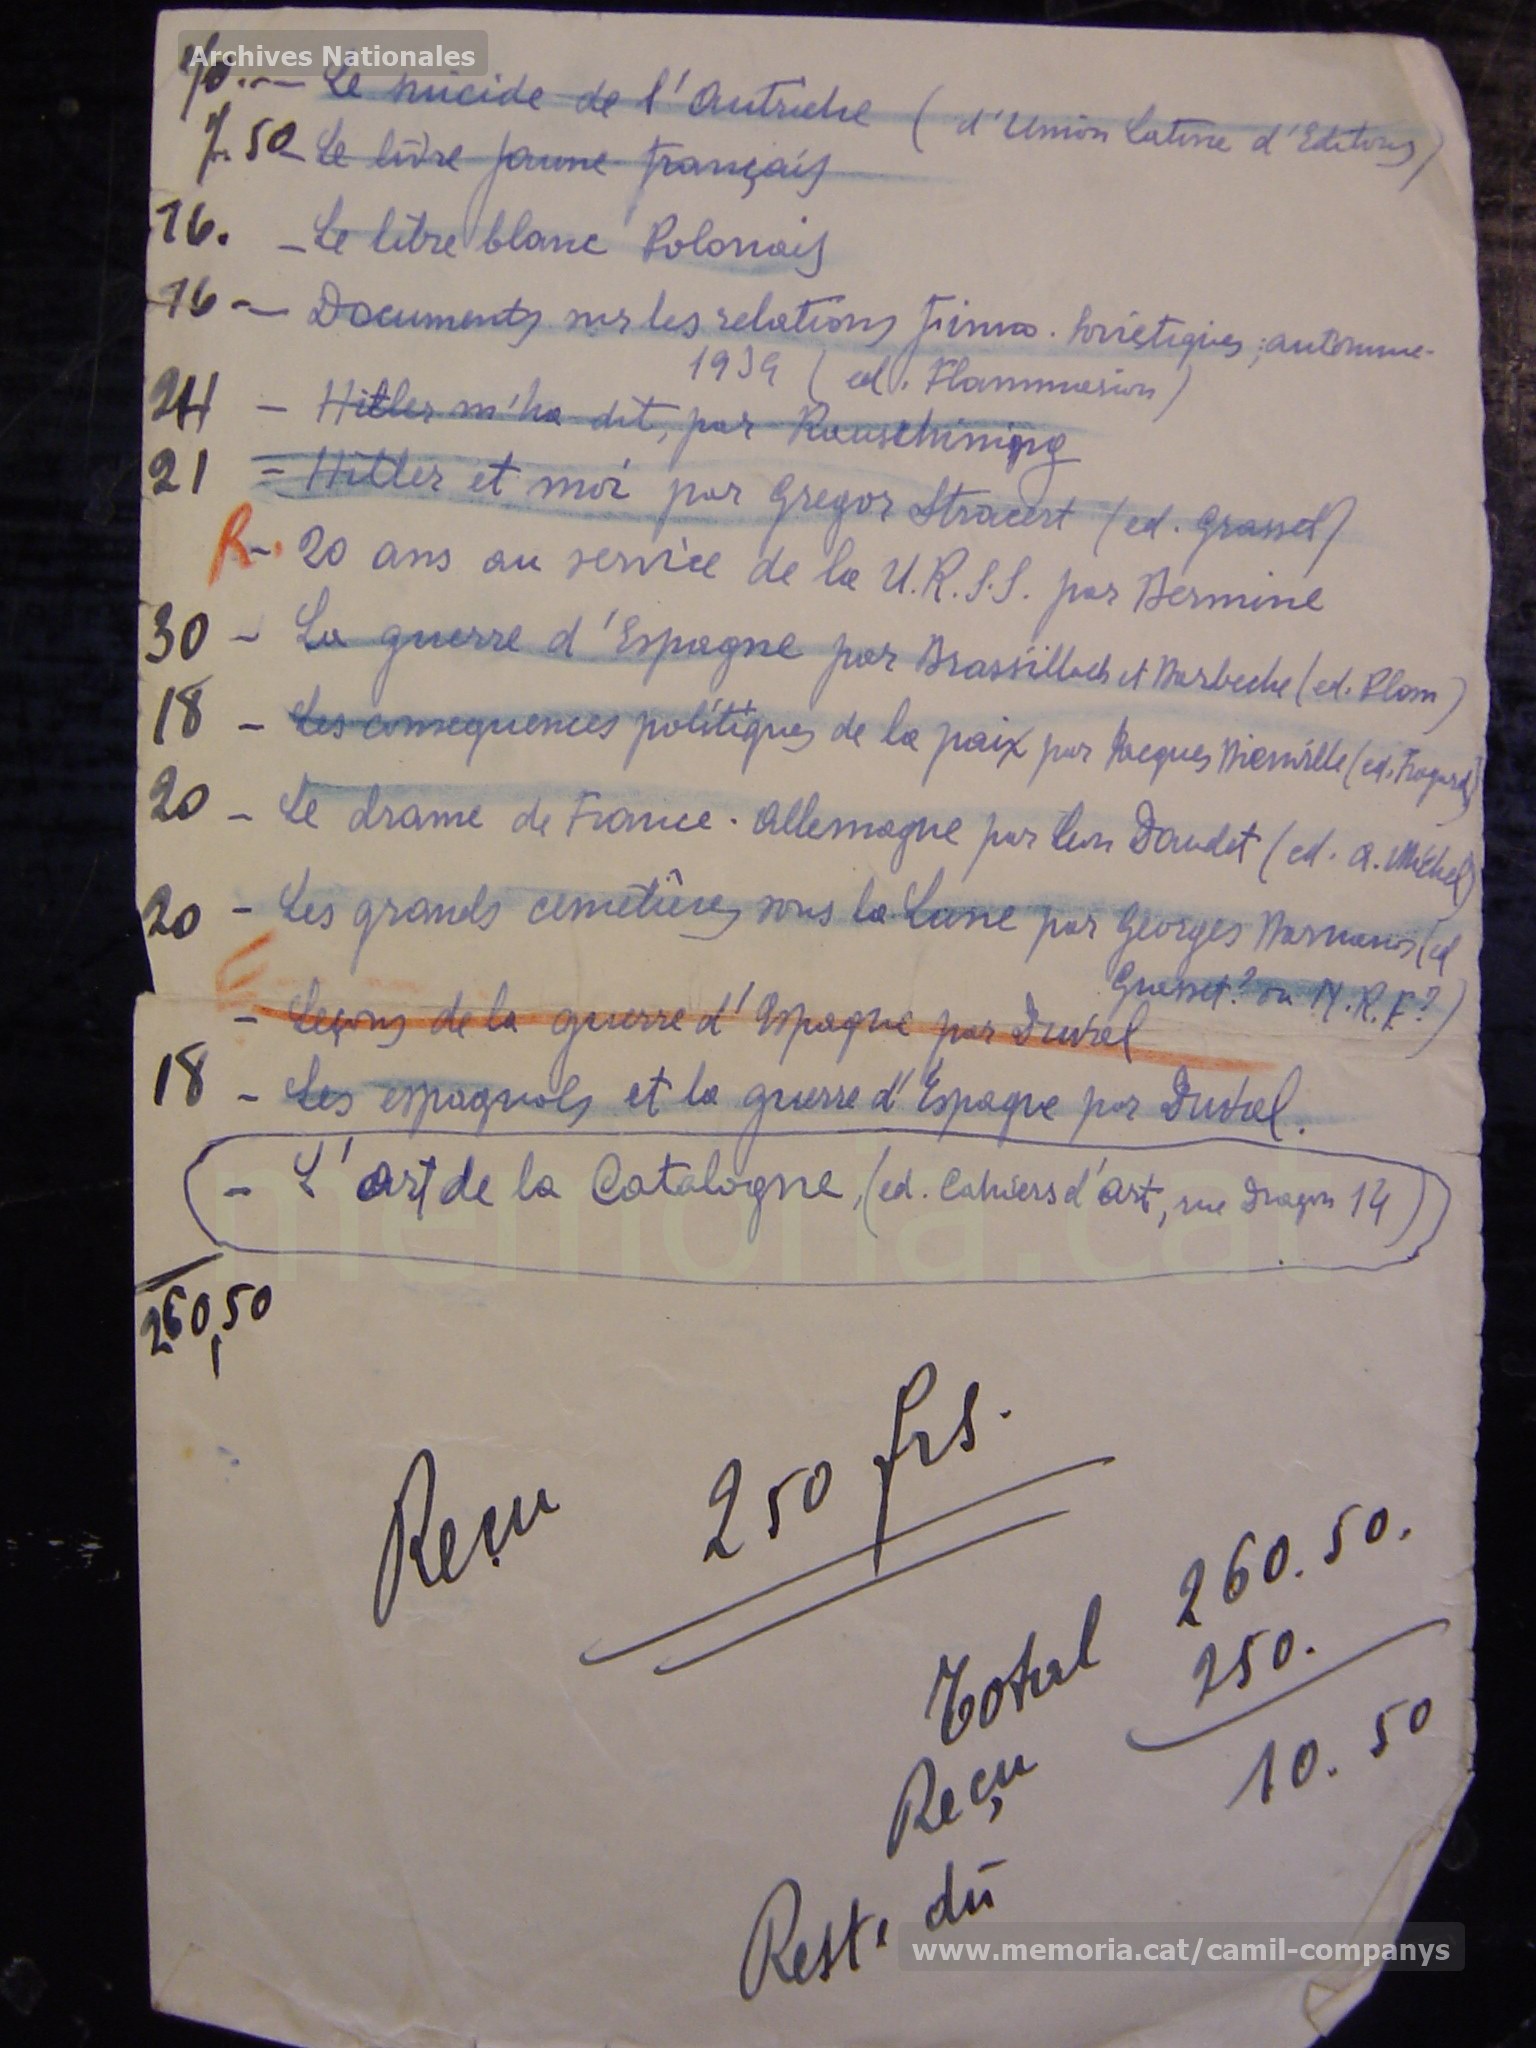 Archives Nationales
70.-- Le suicide de l'Autriche (d'Union Latine d'Editors)
7.50- Le livre jaune français
16. - Le libre blanc Polonais
16 -- Documents sur les relations finno-soviétiques; automne-
1939 (ed. Flammarion)
24 - Hitler m'ha dit, par Rauschining
21 - Hitler et moi par Gregor Stracert (ed. Grasset)
R. - 20 ans au service de la U.R.S.S. par Bermine
30 - La guerre d'Espagne par Brassillach et Barbeche (ed. Plom)
18 - Les consequences politiques de la paix par Jacques Bienville (ed. Fayard)
20 - Le drame de France-Allemagne par Leon Daudet (ed. A. Michel)
20 - Les grands cemetières sous la Lune par Georges Bernanos (ed
Grasset? ou N.R.F?)
- Leçons de la guerre d'Espagne par Duval
18 - Les espagnols et la guerre d'Espagne par Duval.
- L'art de la Catalogne, (ed. Cahiers d'art, rue Dragon 14)
memoria.cat
260,50
Reçu 250 frs.
Total 260.50.
Reçu 250.
Reste dû 10.50
www.memoria.cat/camil-companys